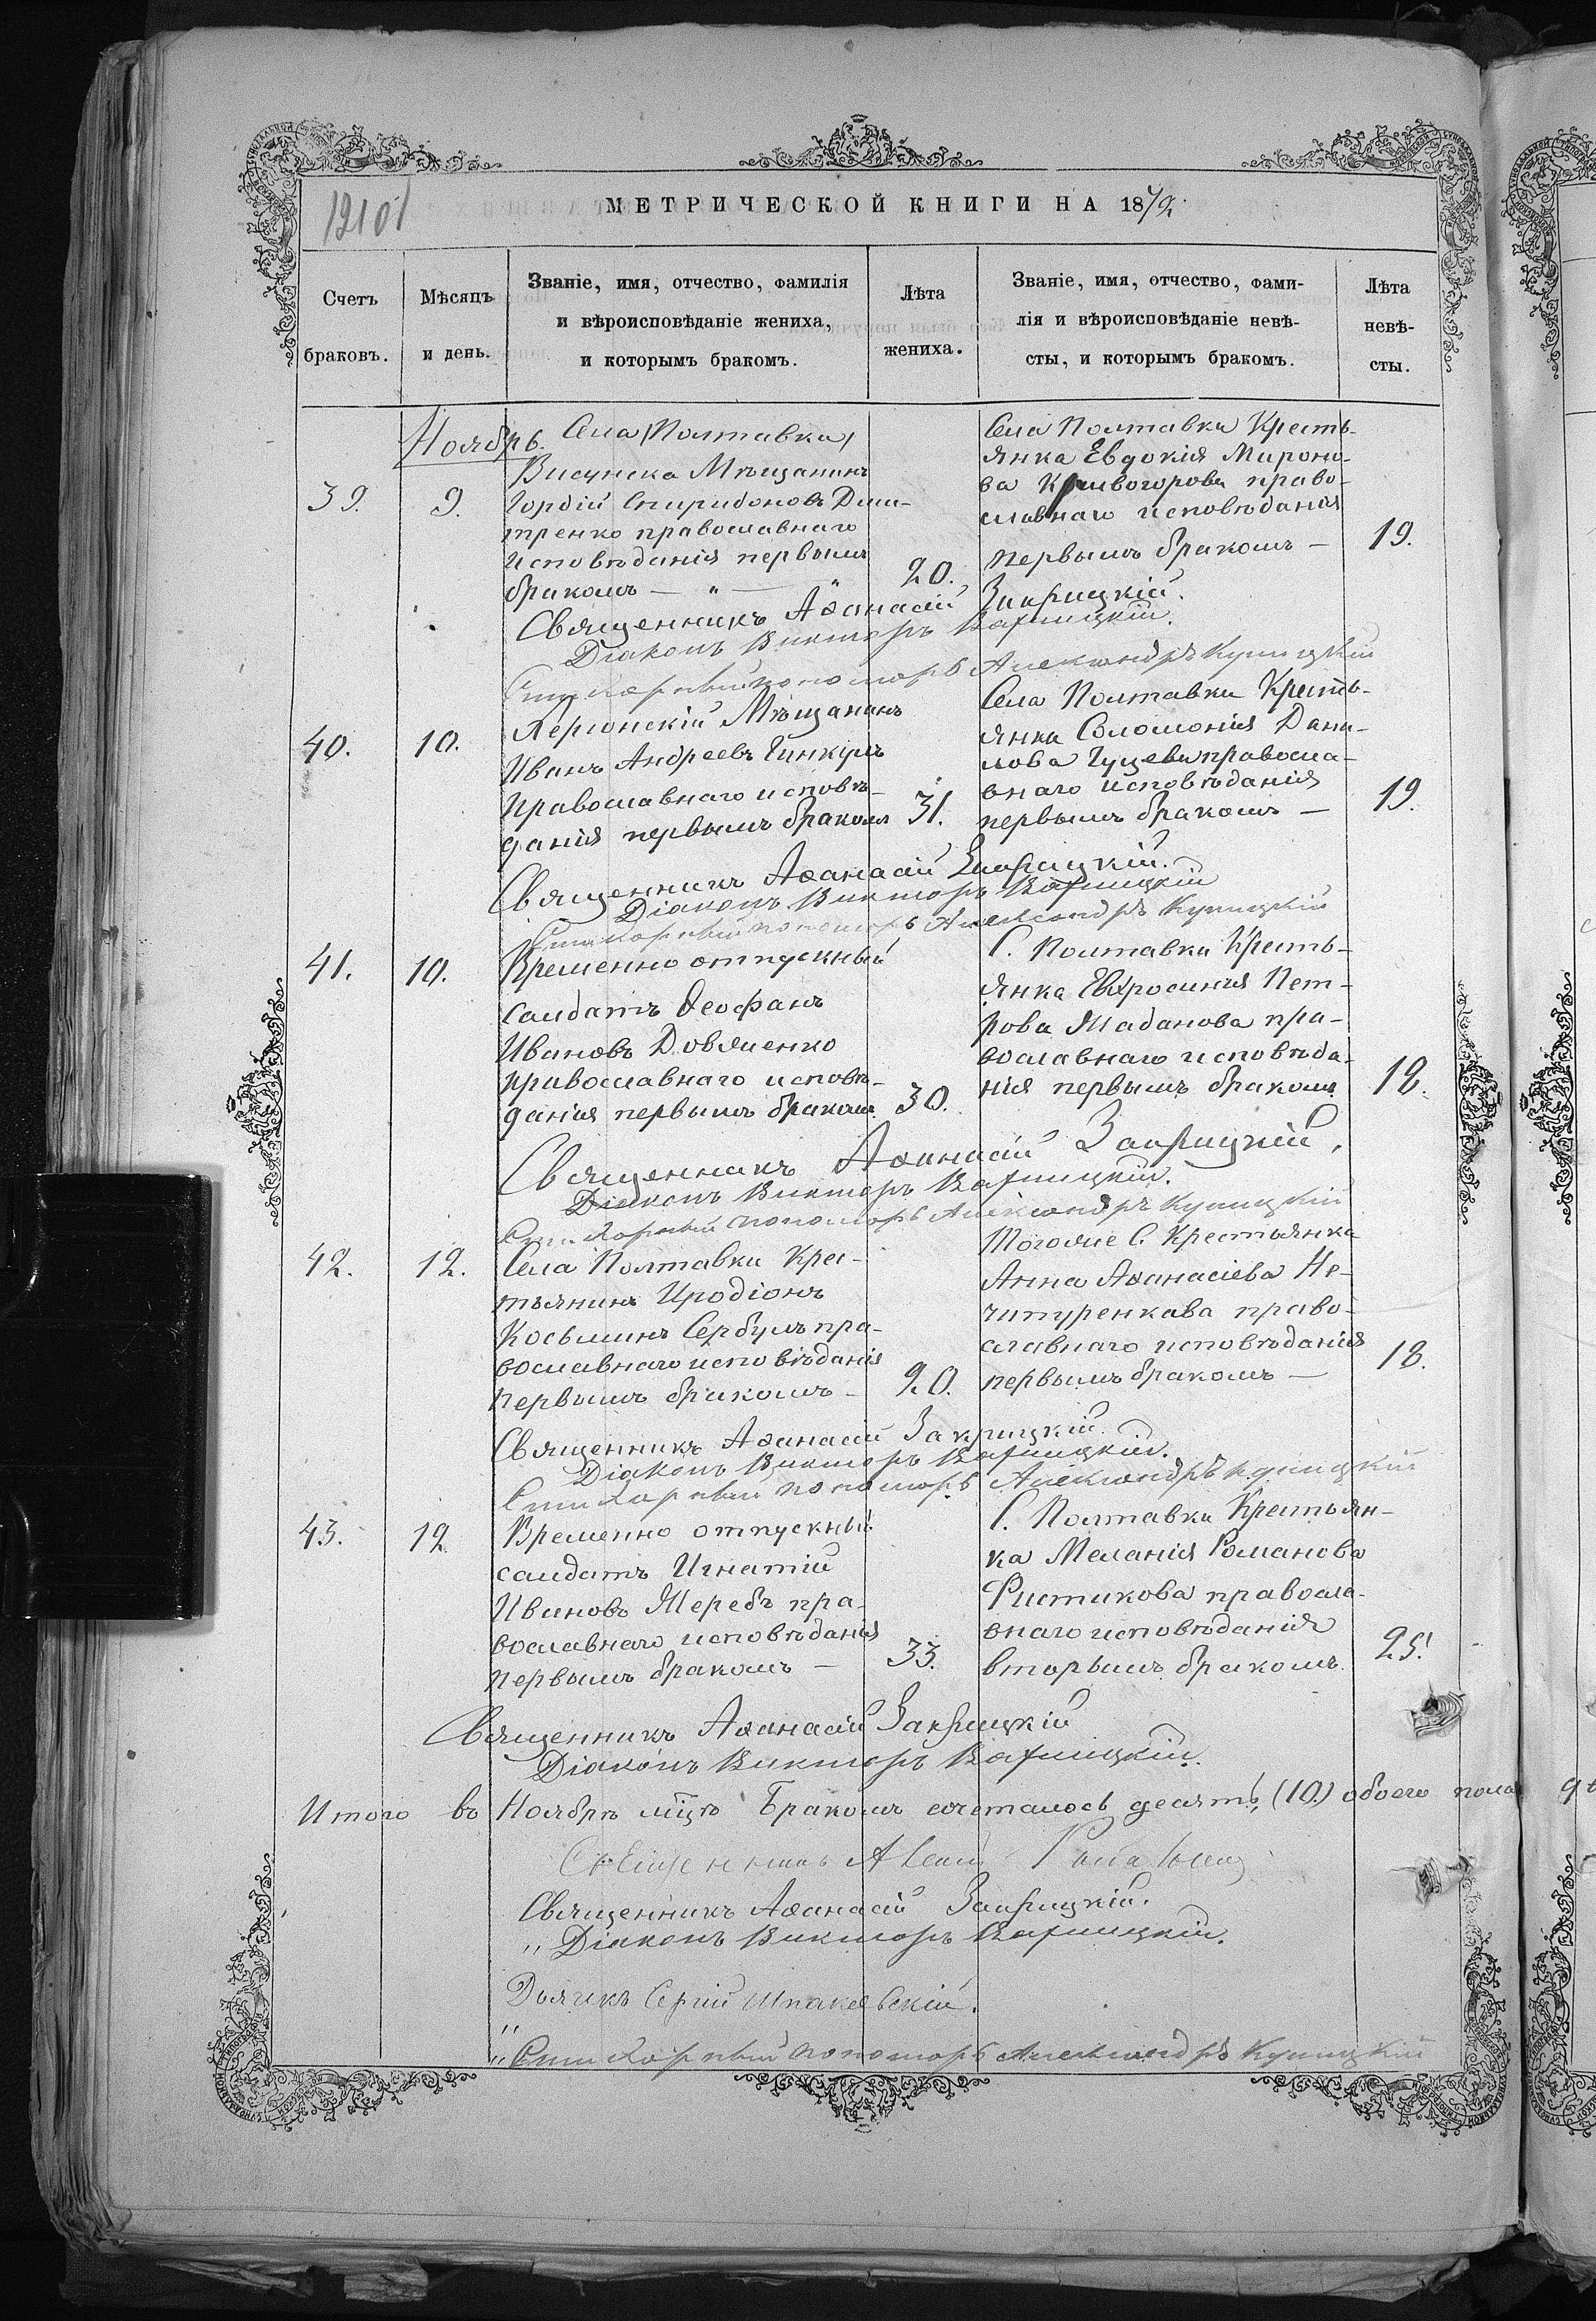 1210
МЕТРИЧЕСКОЙ КНИГИ НА 1872
Счетъ браковъ.
Мѣсяцъ и день.
Званіе, имя, отчество, фамилія
и вѣроисповѣданіе жениха,
и которымъ бракомъ.
Лѣта
жениха.
Званіе, имя, отчество, фами-
лія и вѣроисповѣданіе невѣ-
сты, и которымъ бракомъ.
Лѣта
невѣ-
сты.
Ноябрь.
39.
9.
Села Полтавки
Висунска Мѣщанинъ
Гордій Спиридоновъ Дми-
тренко православнаго
исповѣданія первымъ
бракомъ — „ —
20.
Села Полтавки Кресть-
янка Евдокія Мироно-
ва Кривогорова право-
славнаго исповѣданія
первымъ бракомъ —
19.
Священникъ Аѳанасій Закрицкій.
Діаконъ Викторъ Варницкій.
Стихарный пономарь Александръ Куницкій
40.
10.
Херсонскій Мѣщанинъ
Иванъ Андреевъ Гинкулъ
православнаго исповѣ-
данія первымъ бракомъ
31.
Села Полтавки Кресть-
янка Соломонія Дани-
лова Гуцева правосла-
внаго исповѣданія
первымъ бракомъ —
19.
Священникъ Аѳанасій Закрицкій.
Діаконъ Викторъ Варницкій
Стихарный пономарь Александръ Куницкій
41.
10.
Временно отпускный
салдатъ Ѳеофанъ
Ивановъ Довженко
православнаго исповѣ-
данія первымъ бракомъ
30.
С. Полтавки Кресть-
янка Евфросинія Пет-
рова Жаданова пра-
вославнаго исповѣда-
нія первымъ бракомъ
18.
Священникъ Аѳанасій Закрицкій.
Діаконъ Викторъ Варницкій.
Стихарный пономарь Александръ Куницкій
42.
12.
Села Полтавки Крес-
тьянинъ Иродіонъ
Косьминъ Сербулъ пра-
вославнаго исповѣданія
первымъ бракомъ —
20.
Тогоже С. Крестьянка
Анна Аѳанасіева Не-
читуренкава право-
славнаго исповѣданія
первымъ бракомъ —
18.
Священникъ Аѳанасій Закрицкій.
Діаконъ Викторъ Варницкій.
Стихарный пономарь Александръ Куницкій
43.
12
Временно отпускный
салдатъ Игнатій
Ивановъ Жеребъ пра-
вославнаго исповѣданія
первымъ бракомъ —
33.
С. Полтавки Крестьян-
ка Меланія Романова
Фистикова правосла-
внаго исповѣданія
вторымъ бракомъ
25.
Священникъ Аѳанасій Закрицкій
Діаконъ Викторъ Варницкій.
Итого въ Ноябрѣ мцѣ Бракомъ сочеталось десять (10.) обоего пола
Священникъ
Священникъ Аѳанасій Закрицкій.
„ Діаконъ Викторъ Варницкій.
Дьячкъ Сергій Шпаковскій.
„
„ Стихарный пономарь Александръ Куницкій